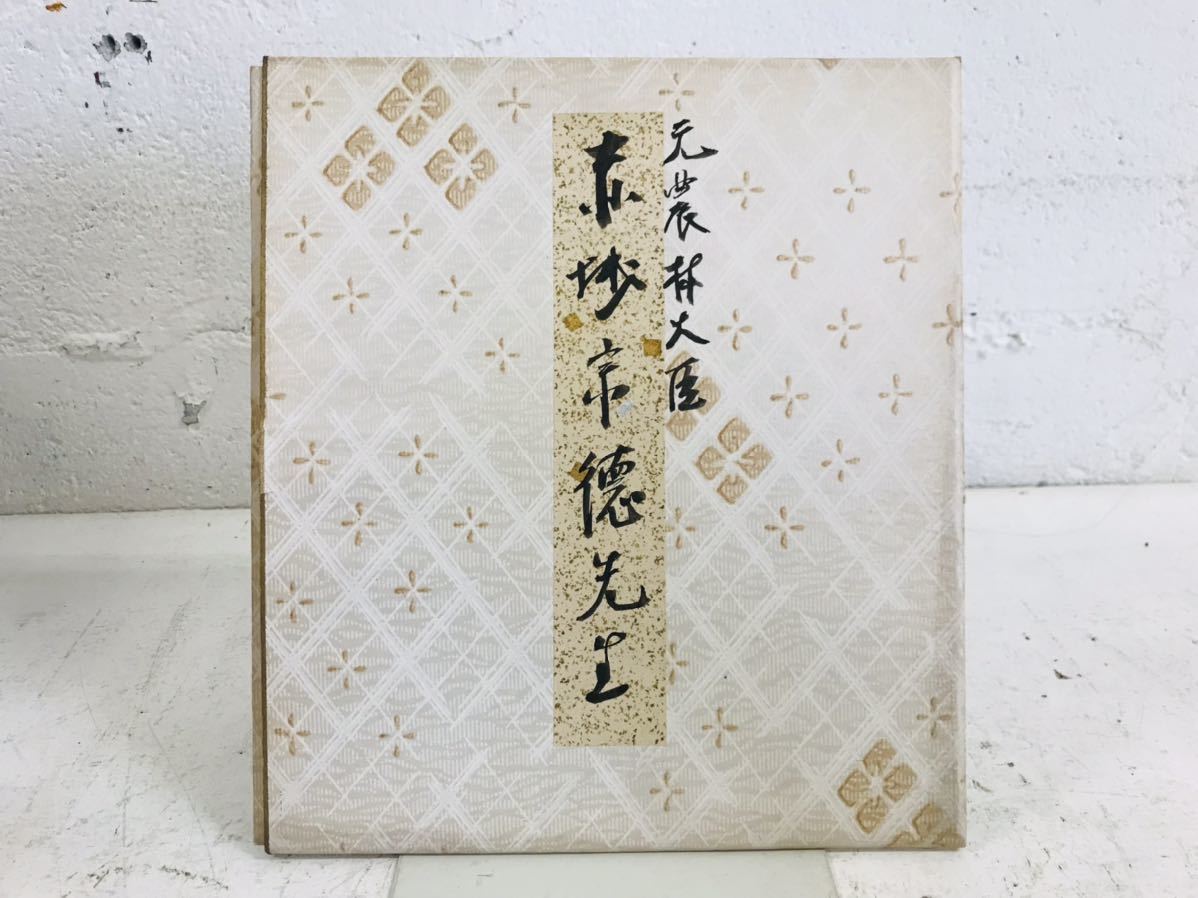 元農林大臣
赤城宗徳先生